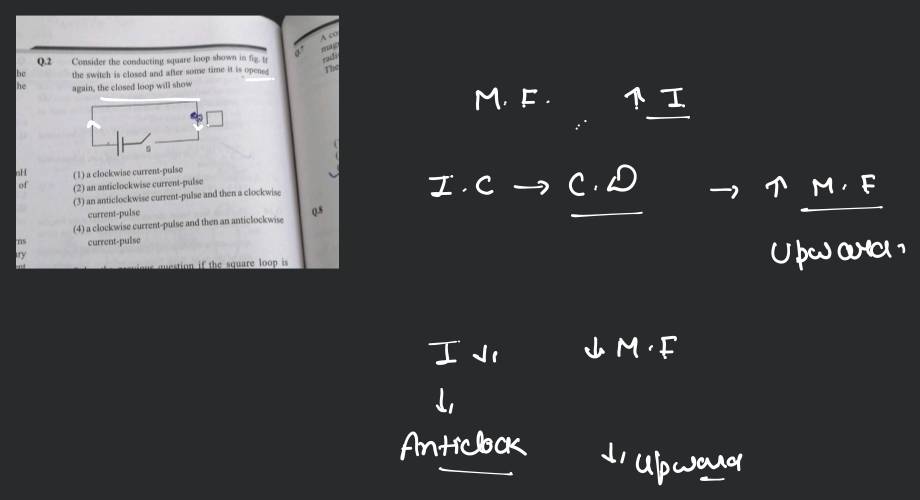 Q.2 Consider the conducting square loop shown in fig. If
the switch is closed and after some time it is opened
again, the closed loop will show
S
(1) a clockwise current-pulse
(2) an anticlockwise current-pulse
(3) an anticlockwise current-pulse and then a clockwise
current-pulse
(4) a clockwise current-pulse and then an anticlockwise
current-pulse
question if the square loop is
he
he
nH
of
ns
ry
Q.7 A co
mag
radi
The
Q.8
M. F. ↑ I
I.C → C.D → ↑ M.F
Upward,
I ↓, ↓ M.F
↓,
Anticlock ↓, upward